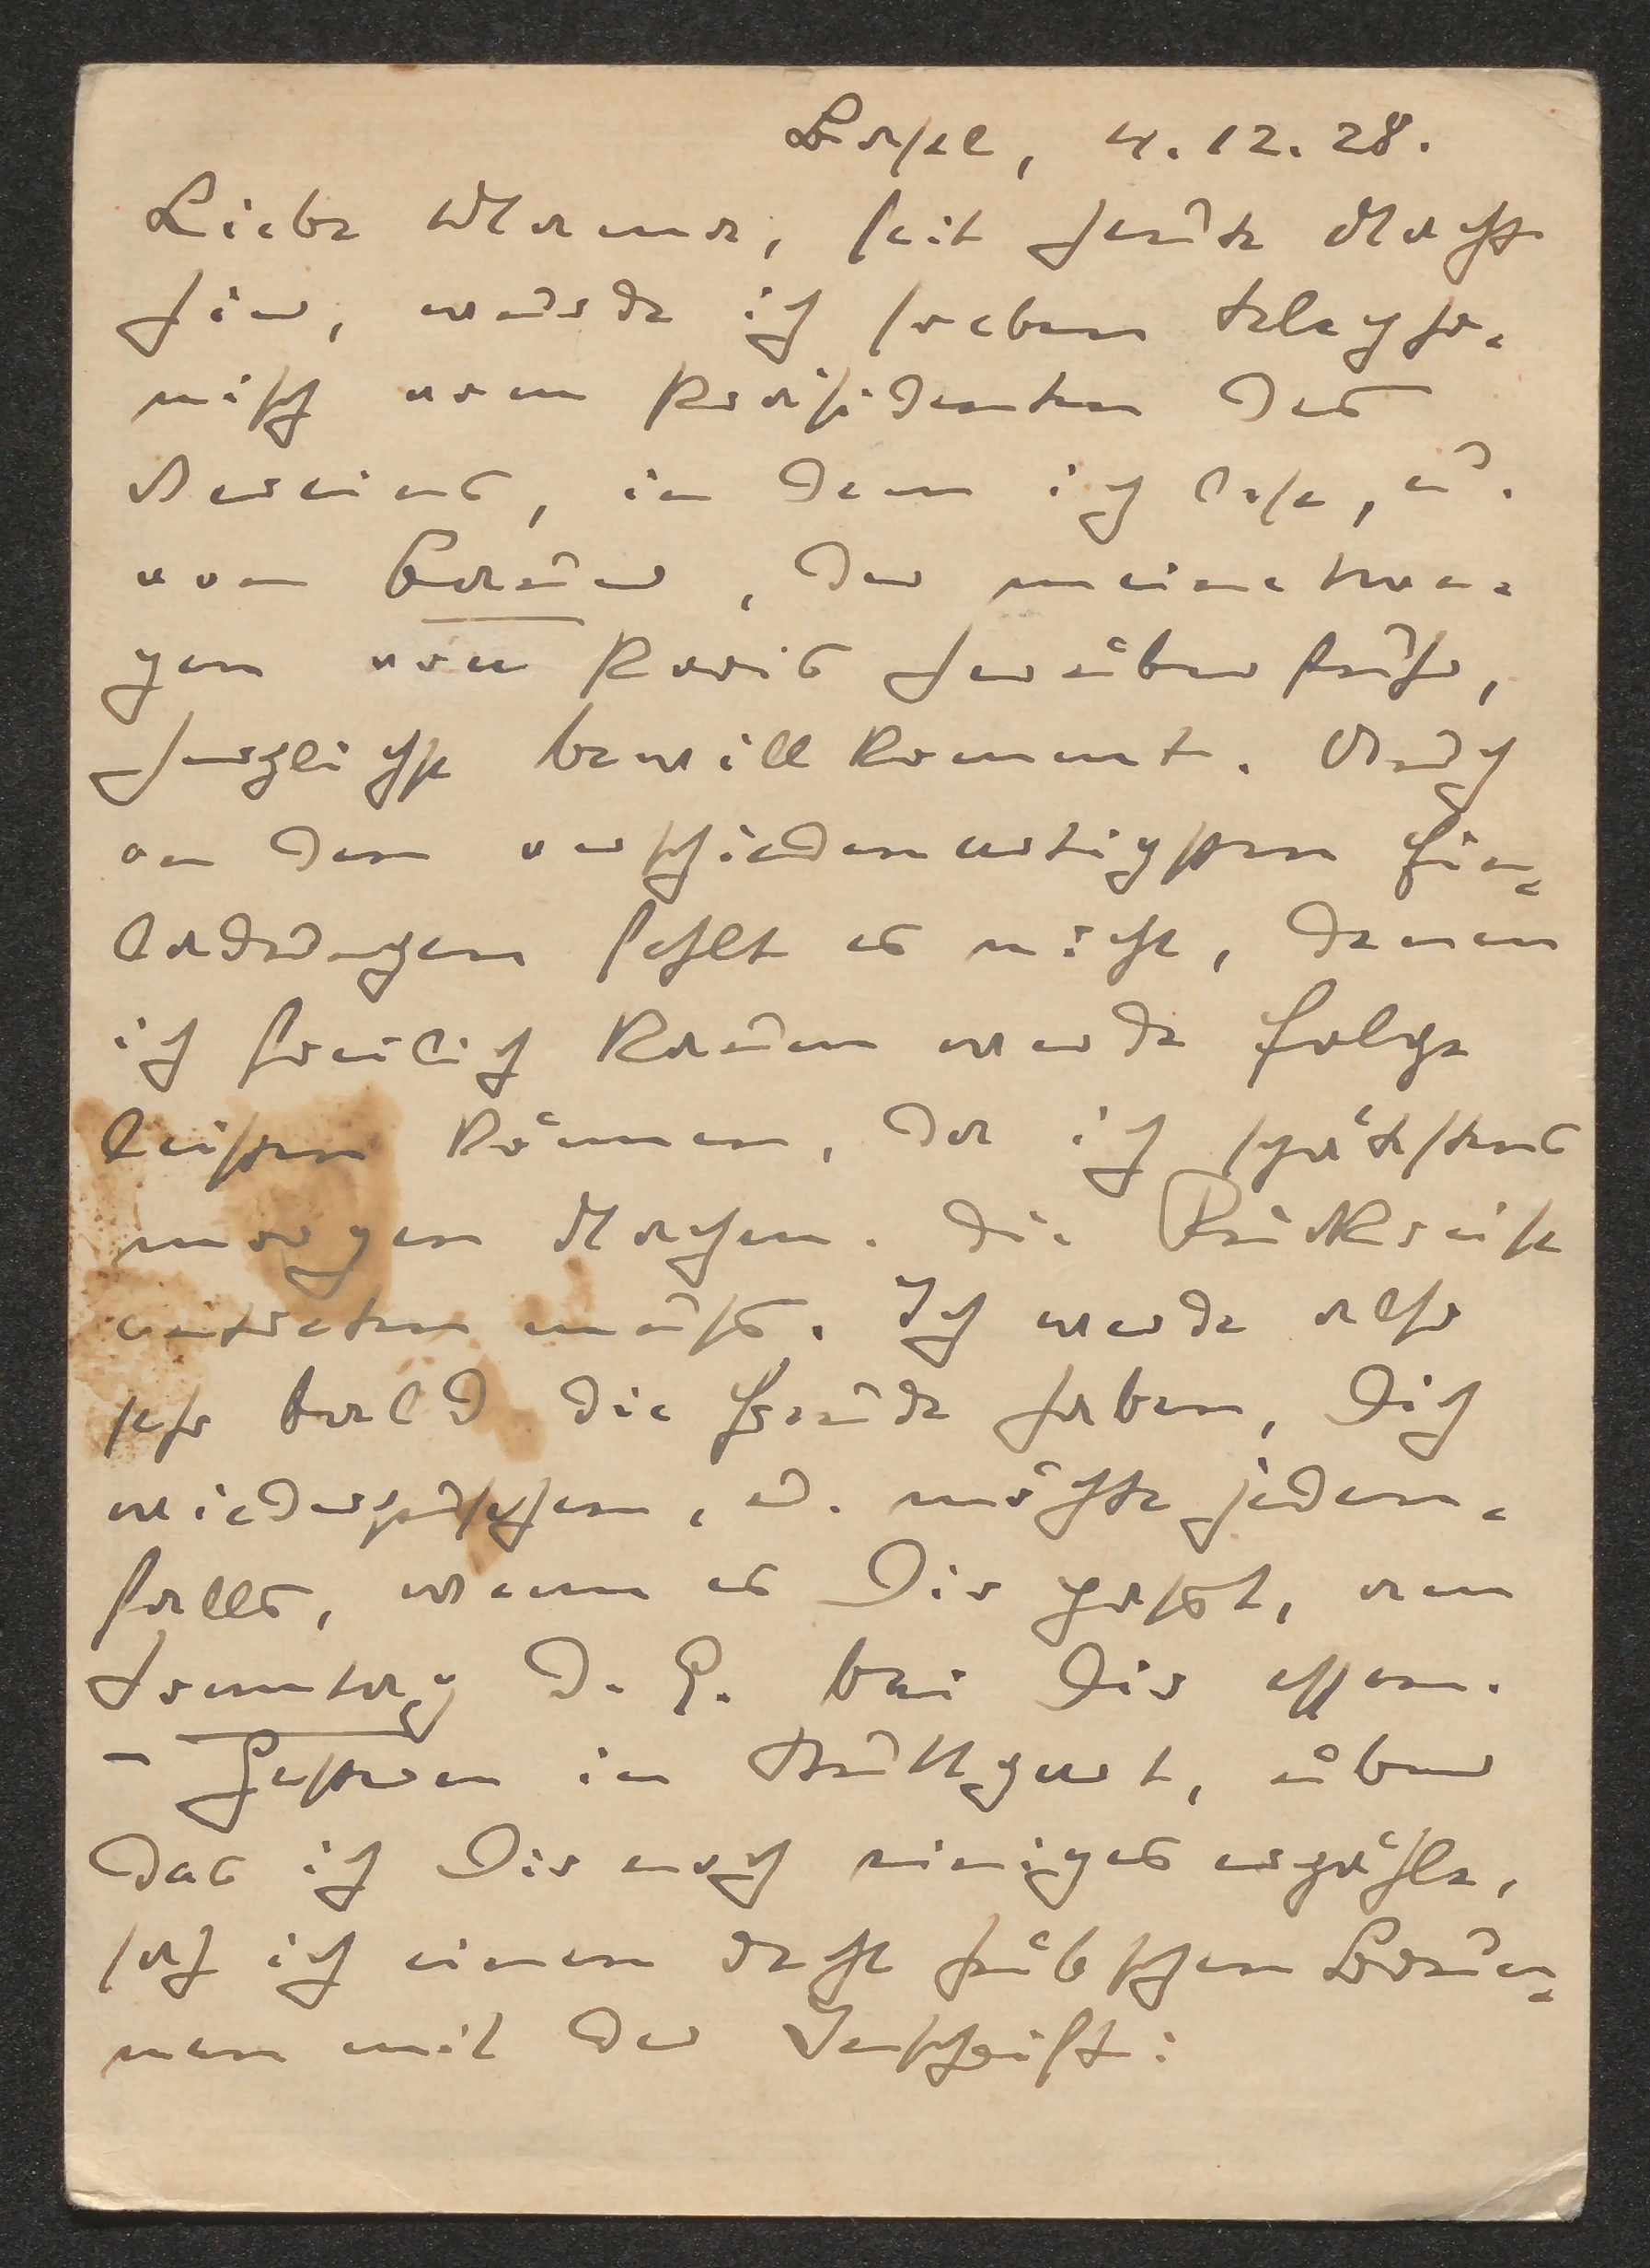 Basel, 4.12.28.
Liebe Mama, seit heute Nacht
hier, wurde ich soeben telepho-
nisch vom Präsidenten des
Vereins, in dem ich lese, u.
von Baur, der meinetwe-
gen von Paris herüber fuhr,
herzlichst bewillkommt. Auch
an den verschiedenartigsten Ein-
ladungen fehlt es nicht, denen
ich freilich kaum werde Folge
leisten können, da ich spätestens
morgen Nachm. die Rückreise
antreten muss. Ich werde also
sehr bald die Freude haben, Dich
wiederzusehen, u. möchte jeden-
falls, wenn es Dir passt, am
Sonntag d. 9. bei Dir essen.
– Gestern in Stuttgart, über
das ich Dir noch einiges erzähle,
sah ich einen recht hübschen Brun-
nen mit der Inschrift: